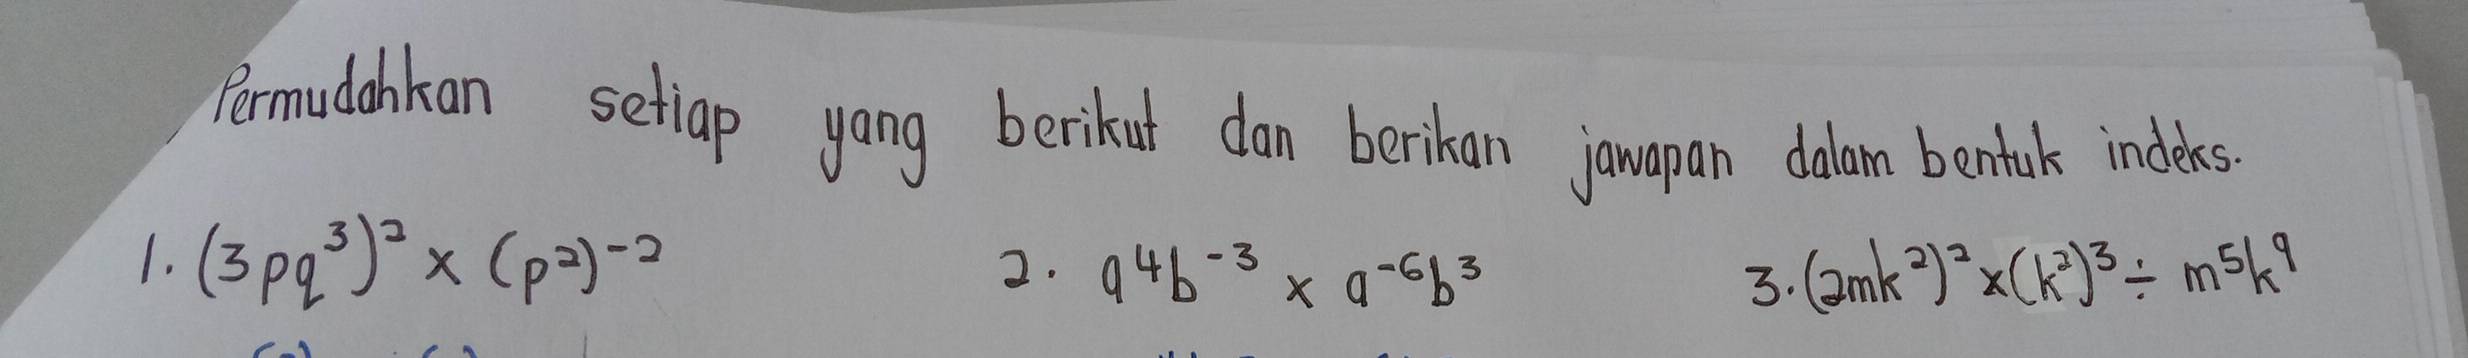 Permudahkan setiap yang berikut dan berikan jawapan dalam bentuk indeks.
1. (3pq³)² × (p²)⁻² 2. a⁴b⁻³ × a⁻⁶b³ 3. (2mk²)² × (k²)³ ÷ m⁵k⁹